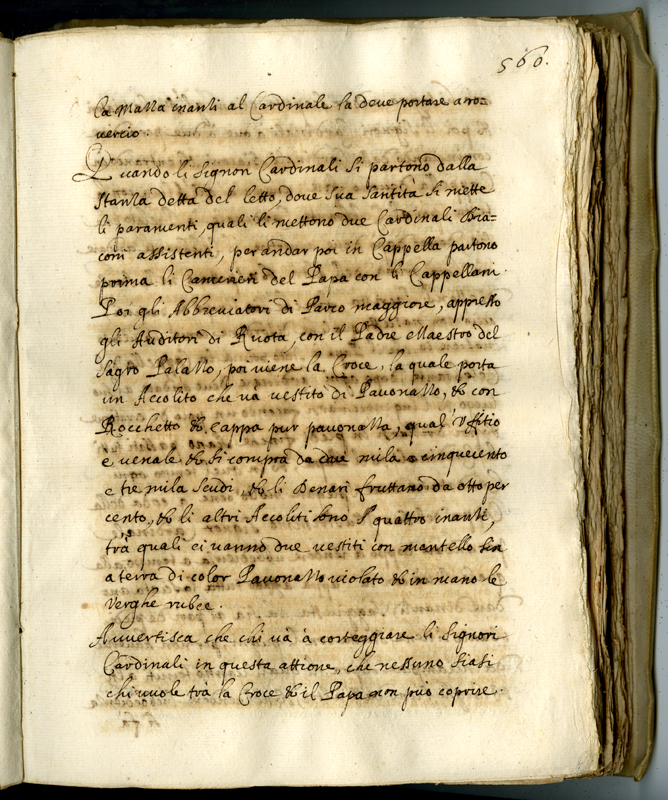 560.
la Mazza inanti al Cardinale la deve portare a ro=
vercio.
Quando li Signori Cardinali si partono dalla
stanza detta del letto, dove sua Santità si mette
li paramenti, quali li mettono due Cardinali Dia=
coni assistenti, per andar poi in Cappella partono
prima li Camerieri del Papa con li Cappellani.
Poi gli Abbreviatori di Parco maggiore, appresso
gli Auditori di Ruota, con il Padre Maestro del
Sagro Palazzo, poi viene la Croce, la quale porta
un Accolito che và vestito di Pavonazzo, & con
Rocchetto & cappa pur pavonazza, qual' Uffitio
e venale & si compra da due mila e cinquecento
e tre mila scudi, & li Denari fruttano da otto per
cento, & li altri Accoliti sono i quattro inanti,
trà quali ci vanno due vestiti con mantello sin
a terra di color Pavonazzo violato & in mano le
Verghe rubee.
Avvertisca che chi và à corteggiare li Signori
Cardinali in questa attione, che nessuno siasi
chi vuole trà la Croce & il Papa non può coprire.